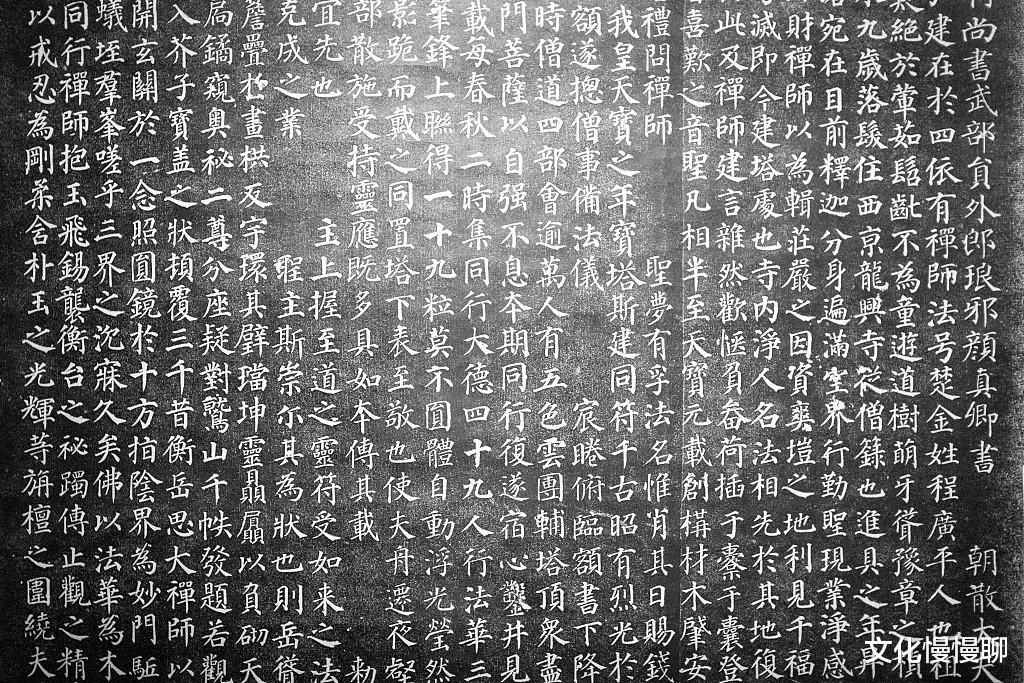 尚書武部貟外郎琅邪顔真卿書 朝散大夫
建在於四依有禪師法号楚金姓程廣平人也祖
絶於葷茹髫齔不為童遊道樹萌牙聳豫章之楨
九歳落髮住西京龍興寺從僧籙也進具之年昇
宛在目前釋迦分身遍滿空界行勤聖現業淨感
財禪師以為輯莊嚴之因資爽塏之地利見千福
滅即今建塔處也寺内淨人名法相先於其地復
此及禪師建言雜然歡愜負畚荷插于橐于囊登
喜歎之音聖凡相半至天寶元載創構材木肇安
禮問禪師 聖夢有孚法名惟肖其日賜錢
我皇天寶之年寶塔斯建同符千古昭有烈光於
額遂捴僧事備法儀 宸睠俯臨額書下降
時僧道四部會逾萬人有五色雲團輔塔頂衆盡
門菩薩以自强不息夲期同行復遂宿心鑿井見
載毋春秋二時集同行大德四十九人行法華三
筆鋒上聯得一十九粒莫不圓體自動浮光瑩然
影跪而戴之同置塔下表至敬也使夫舟遷夜壑
部散施受持靈應既多具如夲傳其載 勑
宜先也 主上握至道之靈符受如来之法
克成之業 聖主斯崇尒其為狀也則岳聳
簷疊於畫栱反宇環其壁璫坤靈贔屭以負砌天
局鐍窺奥秘二尊分座疑對鷲山千帙發題若觀
入芥子寶盖之狀頓覆三千昔衡岳思大禪師以
開玄關於一念照圓鏡於十方指陰界為妙門駈
蟻垤羣峯嗟乎三界之沉寐久矣佛以法華為木
同行禪師抱玉飛錫襲衡台之秘躅傳止觀之精
以戒忍為剛柔含朴玉之光輝等旃檀之圍繞夫
文化慢慢聊